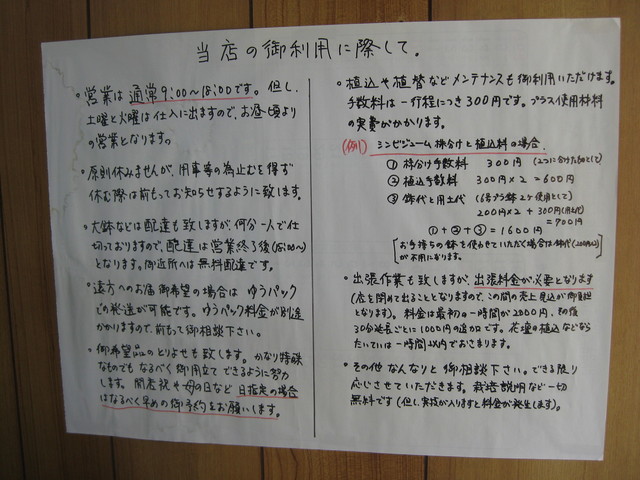 当店の御利用に際して.
・営業は通常9:00〜18:00です。但し、
土曜と火曜は仕入に出ますので、お昼頃より
の営業となります。
・原則休みませんが、用事等の為止むを得ず
休む際は前もってお知らせするように致します。
・大鉢などは配達も致しますが、何分一人で仕
切っておりますので、配達は営業終了後(18:00〜)
となります。御近所へは無料配達です。
・遠方へのお届御希望の場合はゆうパック
での発送が可能です。ゆうパック料金が別途
かかりますので、前もって御相談下さい。
・御希望品のとりよせも致します。かなり特殊
なものでもなるべく御用立てできるように努力
します。開店祝や母の日など日指定の場合
はなるべく早めの御予約をお願いします。
・植込や植替などメンテナンスも御利用いただけます。
手数料は一行程につき300円です。プラス使用材料
の実費がかかります。
(例) シンビジューム株分けと植込料の場合.
① 株分け手数料 300円 (2つに分けたものとして)
② 植込手数料 300円×2=600円
③ 鉢代と用土代 (6号プラ鉢2ケ使用として)
200円×2+300円(用土代)
=700円
①+②+③=1600円
[お手持ちの鉢を使わせていただく場合は鉢代(200円×2)
が不用になります。]
・出張作業も致しますが、出張料金が必要となります
(店を閉めて出ることとなりますので、この間の売上見込が御負担
となります)。料金は最初の一時間が2000円、その後
30分延長ごとに1000円の追加です。花壇の植込などなら
たいていは一時間以内でおさまります。
・その他なんなりと御相談下さい。できる限り
応じさせていただきます。栽培説明など一切
無料です(但し、実技が入りますと料金が発生します)。